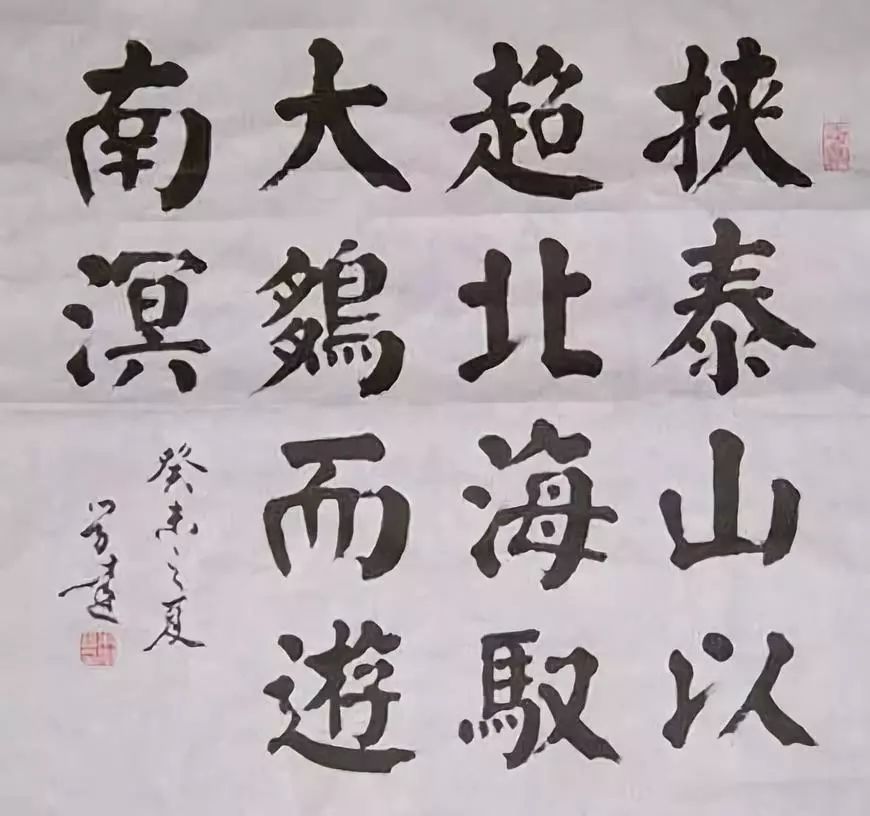 挾泰山以
超北海馭
大鵬而遊
南溟
癸未之夏